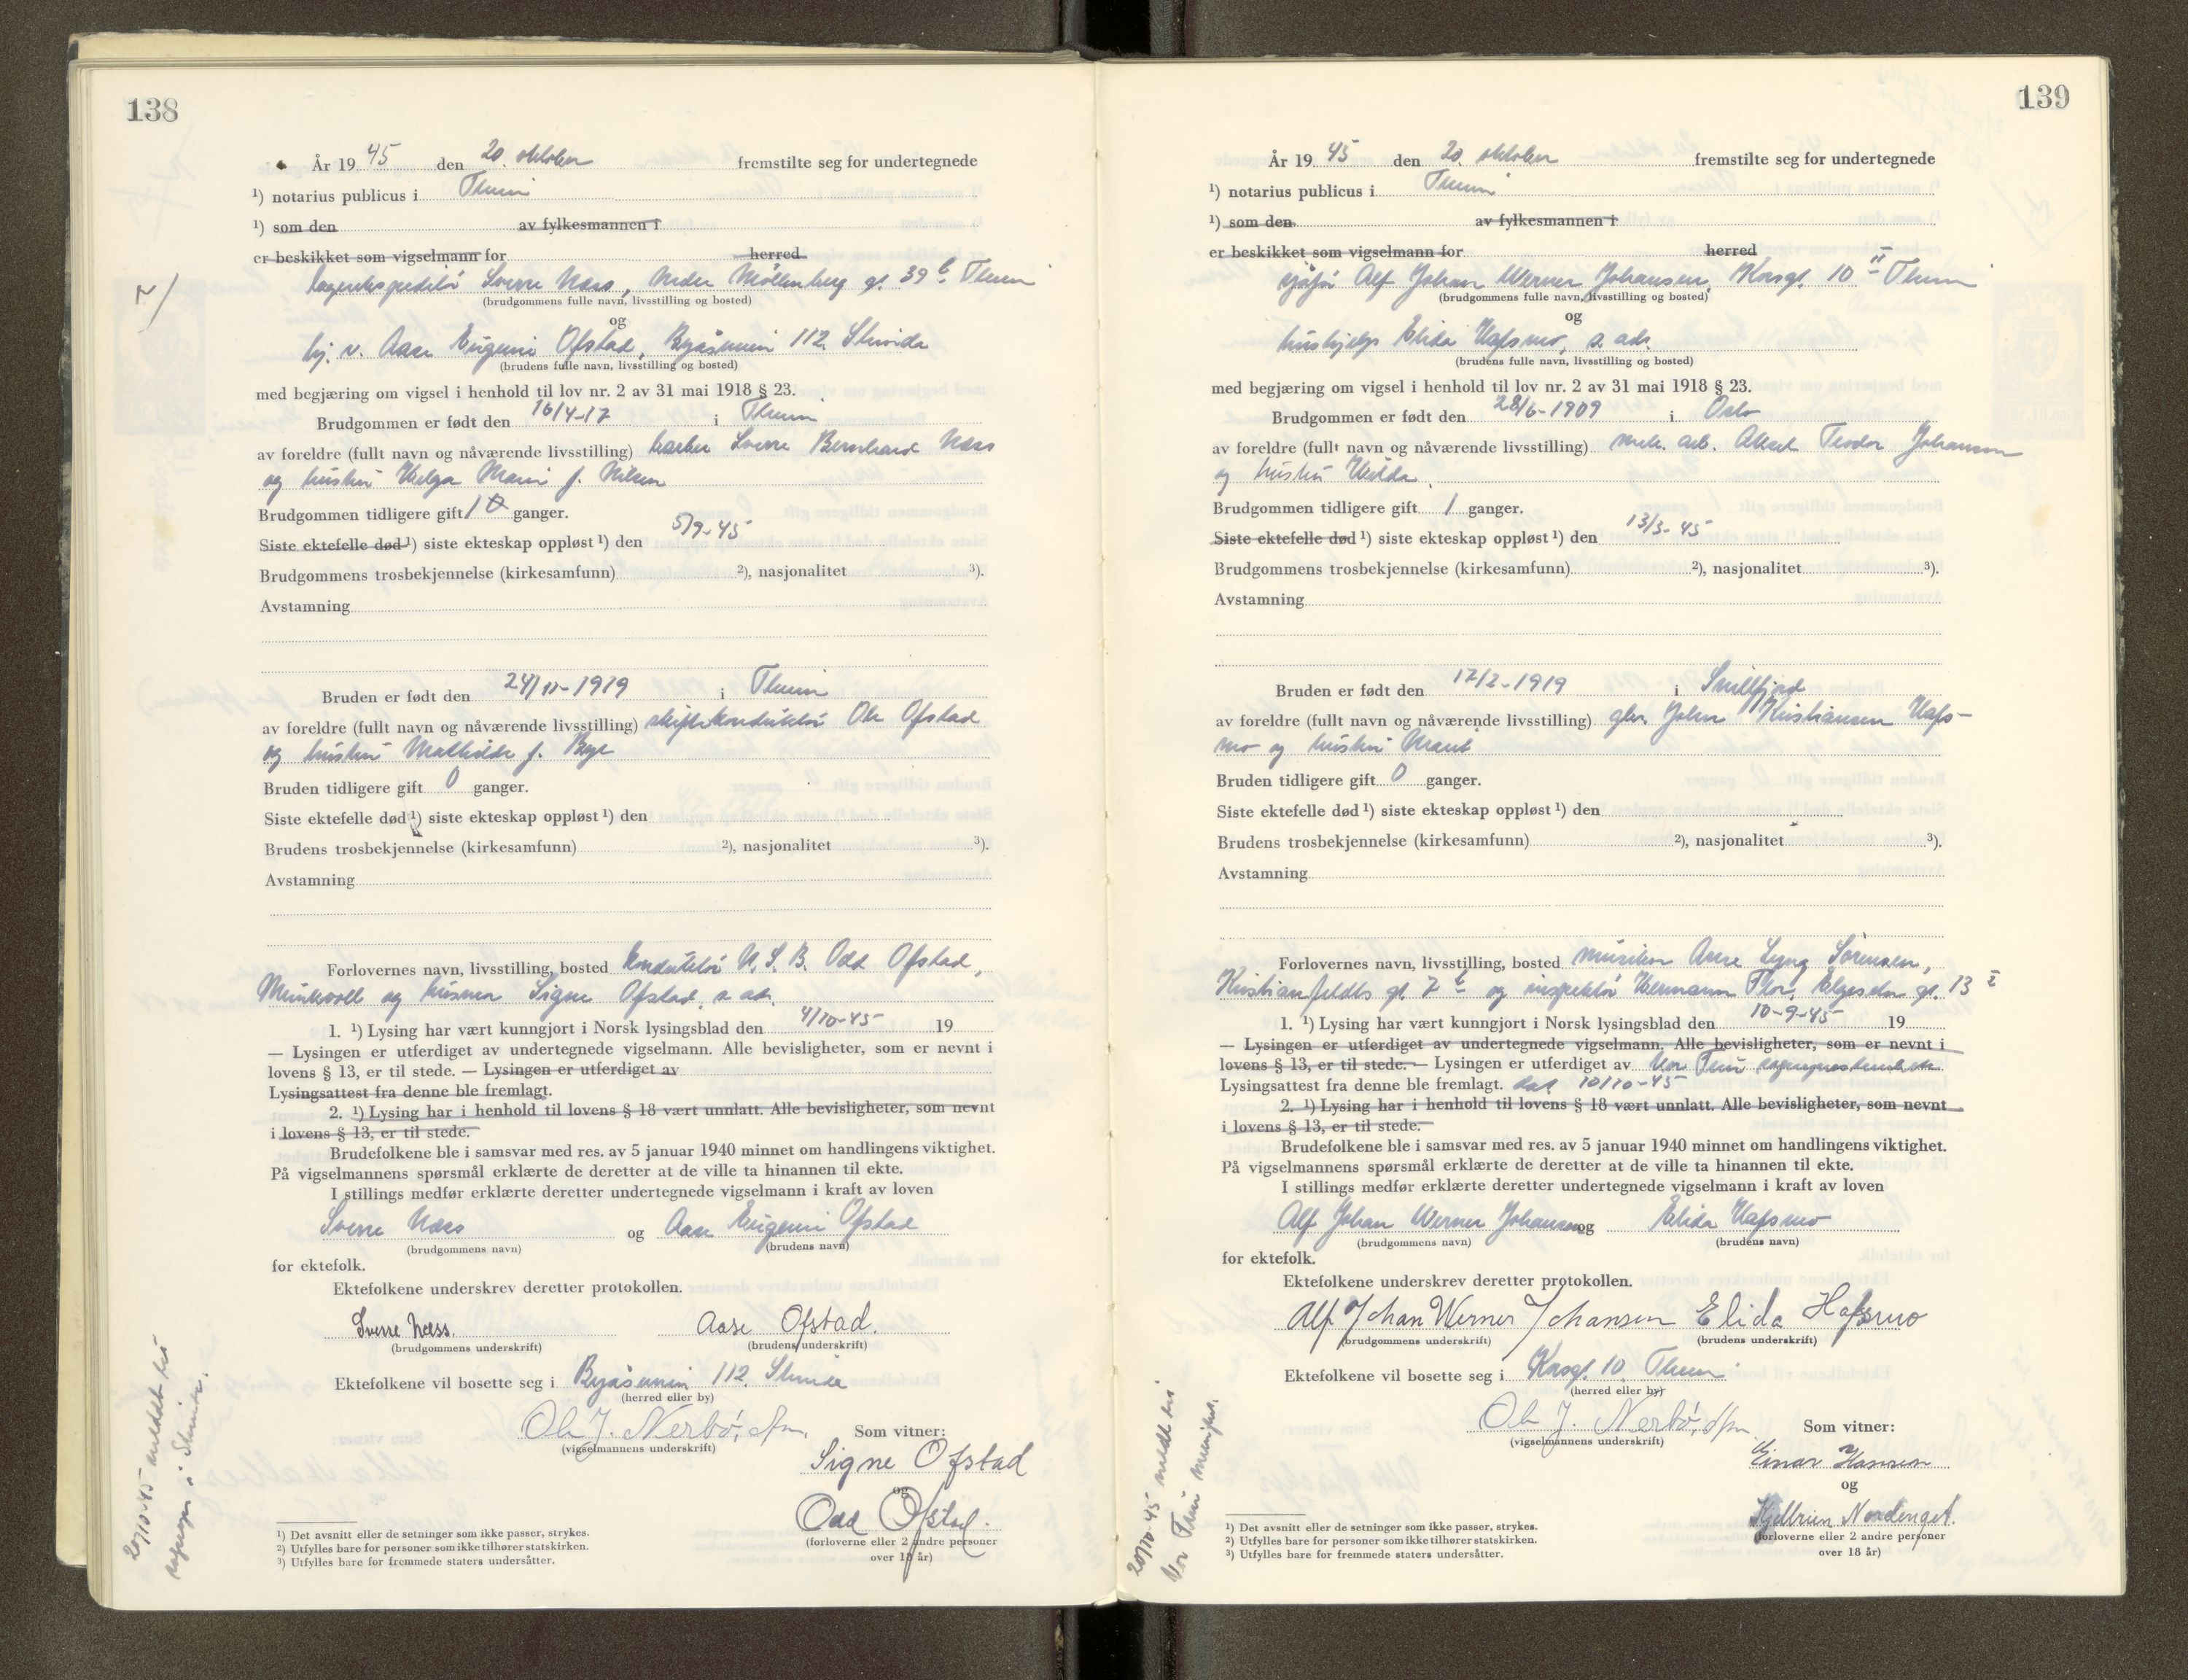 138
År 19 45 den 20. oktober fremstilte seg for undertegnede
¹) notarius publicus i Thrm
¹) som den av fylkesmannen i
er beskikket som vigselmann for herred
lagerekspeditör Sverre Næss, nedre Möllenberg gt. 39 b Thrm
(brudgommens fulle navn, livsstilling og bosted)
og
hj. v. Aase Eugenie Ofstad, Byåsveien 112 Strinda
(brudens fulle navn, livsstilling og bosted)
med begjæring om vigsel i henhold til lov nr. 2 av 31 mai 1918 § 23.
Brudgommen er født den 16/4-17 i Thrm
av foreldre (fullt navn og nåværende livsstilling) Sverre Bernhard Næss
og hustru Helga Marie f. Nilsen
Brudgommen tidligere gift 1 ganger.
Siste ektefelle død ¹) siste ekteskap oppløst ¹) den 5/9-45
Brudgommens trosbekjennelse (kirkesamfunn) ²), nasjonalitet ³).
Avstamning
Bruden er født den 24/11-1919 i Thrm
av foreldre (fullt navn og nåværende livsstilling) skiftekonduktör Ole Ofstad
og hustru Mathilde f. Bye
Bruden tidligere gift 0 ganger.
Siste ektefelle død ¹) siste ekteskap oppløst ¹) den
Brudens trosbekjennelse (kirkesamfunn) ²), nasjonalitet ³).
Avstamning
Forlovernes navn, livsstilling, bosted konduktör N.S.B. Odd Ofstad,
Munkvoll og husmor Signe Ofstad, s. ad.
1. ¹) Lysing har vært kunngjort i Norsk lysingsblad den 4/10-45 19
— Lysingen er utferdiget av undertegnede vigselmann. Alle bevisligheter, som er nevnt i
lovens § 13, er til stede. — Lysingen er utferdiget av
Lysingsattest fra denne ble fremlagt.
2. ¹) Lysing har i henhold til lovens § 18 vært unnlatt. Alle bevisligheter, som nevnt
i lovens § 13, er til stede.
Brudefolkene ble i samsvar med res. av 5 januar 1940 minnet om handlingens viktighet.
På vigselmannens spørsmål erklærte de deretter at de ville ta hinannen til ekte.
I stillings medfør erklærte deretter undertegnede vigselmann i kraft av loven
Sverre Næss og Aase Eugenie Ofstad
(brudgommens navn) (brudens navn)
for ektefolk.
Ektefolkene underskrev deretter protokollen.
Sverre Næss. Aase Ofstad.
(brudgommens underskrift) (brudens underskrift)
Ektefolkene vil bosette seg i Byåsveien 112 Strinda
(herred eller by)
Ole J. Nerbö, dfm. Som vitner:
(vigselmannens underskrift)
Signe Ofstad
og
Odd Ofstad.
(forloverne eller 2 andre personer
over 18 år)
¹) Det avsnitt eller de setninger som ikke passer, strykes.
²) Utfylles bare for personer som ikke tilhører statskirken.
³) Utfylles bare for fremmede staters undersåtter.
20/10-45 meldt til
i Strinda.
139
År 19 45 den 20. oktober fremstilte seg for undertegnede
¹) notarius publicus i Thrm
¹) som den av fylkesmannen i
er beskikket som vigselmann for herred
sjåför Alf Johan Werner Johansen, Korsgt. 10 II Thrm
(brudgommens fulle navn, livsstilling og bosted)
og
hushjelp Elida Hafsmo, s. ads.
(brudens fulle navn, livsstilling og bosted)
med begjæring om vigsel i henhold til lov nr. 2 av 31 mai 1918 § 23.
Brudgommen er født den 28/6-1909 i Oslo
av foreldre (fullt navn og nåværende livsstilling) mek. arb. Aksel Teodor Johansen
og hustru Hilda.
Brudgommen tidligere gift 1 ganger.
Siste ektefelle død ¹) siste ekteskap oppløst ¹) den 13/3-45
Brudgommens trosbekjennelse (kirkesamfunn) ²), nasjonalitet ³).
Avstamning
Bruden er født den 17/2-1919 i Snillfjord
av foreldre (fullt navn og nåværende livsstilling) gbr. John Kristiansen Hafs-
mo og hustru Marit
Bruden tidligere gift 0 ganger.
Siste ektefelle død ¹) siste ekteskap oppløst ¹) den
Brudens trosbekjennelse (kirkesamfunn) ²), nasjonalitet ³).
Avstamning
Forlovernes navn, livsstilling, bosted musiker Arne Lyng Sörensen,
Kristianfeldts gt. 7 b og inspektör Hermann Flor, Elgeseter gt. 13 I
1. ¹) Lysing har vært kunngjort i Norsk lysingsblad den 10-9-45 19
— Lysingen er utferdiget av undertegnede vigselmann. Alle bevisligheter, som er nevnt i
lovens § 13, er til stede. — Lysingen er utferdiget av Vor Frue
Lysingsattest fra denne ble fremlagt. dat 10/10-45
2. ¹) Lysing har i henhold til lovens § 18 vært unnlatt. Alle bevisligheter, som nevnt
i lovens § 13, er til stede.
Brudefolkene ble i samsvar med res. av 5 januar 1940 minnet om handlingens viktighet.
På vigselmannens spørsmål erklærte de deretter at de ville ta hinannen til ekte.
I stillings medfør erklærte deretter undertegnede vigselmann i kraft av loven
Alf Johan Werner Johansen og Elida Hafsmo
(brudgommens navn) (brudens navn)
for ektefolk.
Ektefolkene underskrev deretter protokollen.
Alf Johan Werner Johansen Elida Hafsmo
(brudgommens underskrift) (brudens underskrift)
Ektefolkene vil bosette seg i Korsgt. 10. Thrm
(herred eller by)
Ole J. Nerbö, dfm. Som vitner:
(vigselmannens underskrift)
Einar Hansen
og
Kjellrun Nordenget.
(forloverne eller 2 andre personer
over 18 år)
¹) Det avsnitt eller de setninger som ikke passer, strykes.
²) Utfylles bare for personer som ikke tilhører statskirken.
³) Utfylles bare for fremmede staters undersåtter.
20/10-45 meldt til
Vor Frue menighet.